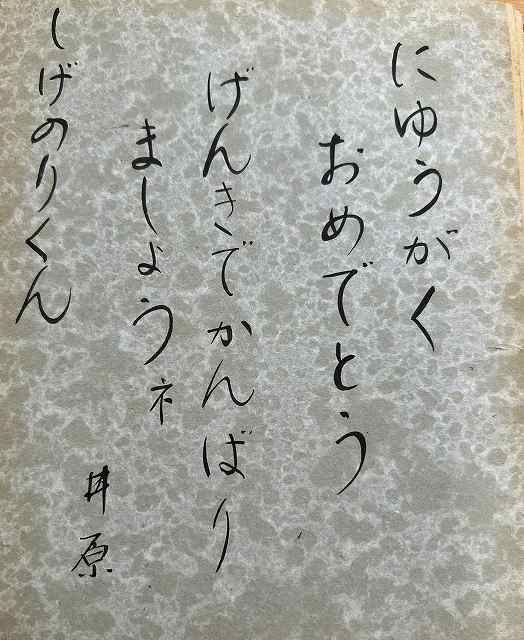 にゆうがく
おめでとう
げんきでかんばり
ましょうネ
井原
しげのりくん